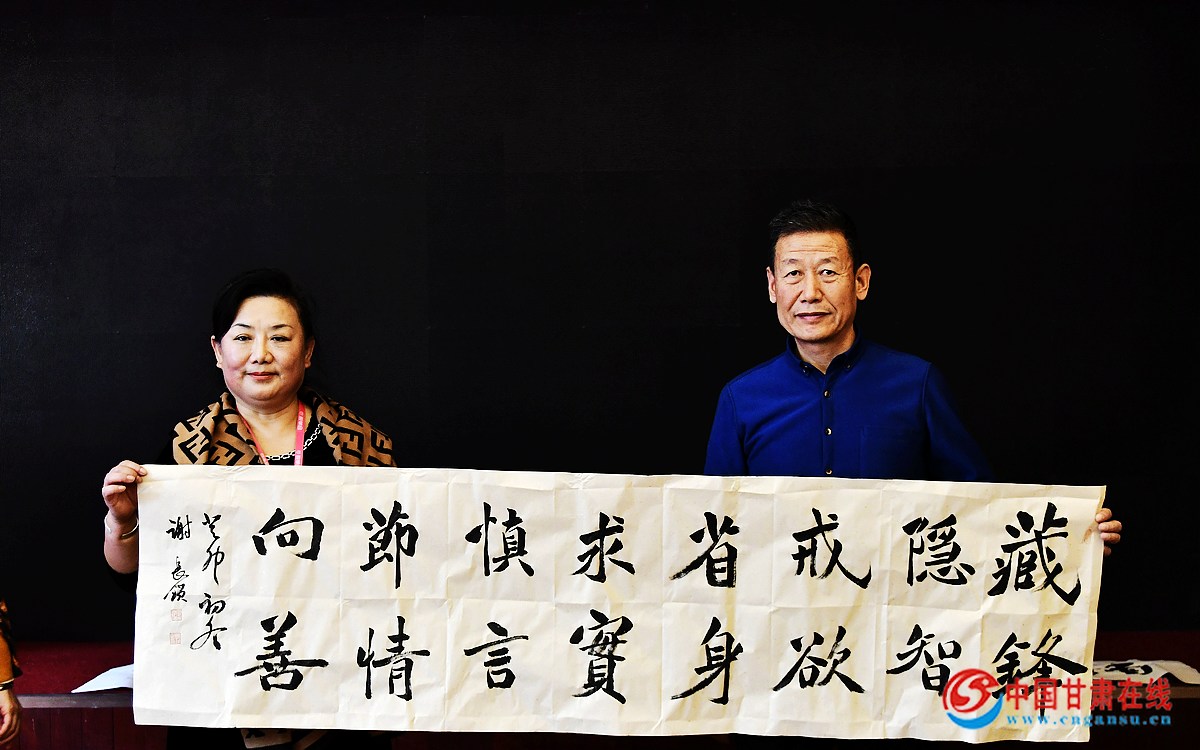 藏鋒
隱智
戒欲
省身
求實
慎言
節情
向善
癸卯初冬
謝長領
中国甘肃在线
www.cngansu.cn